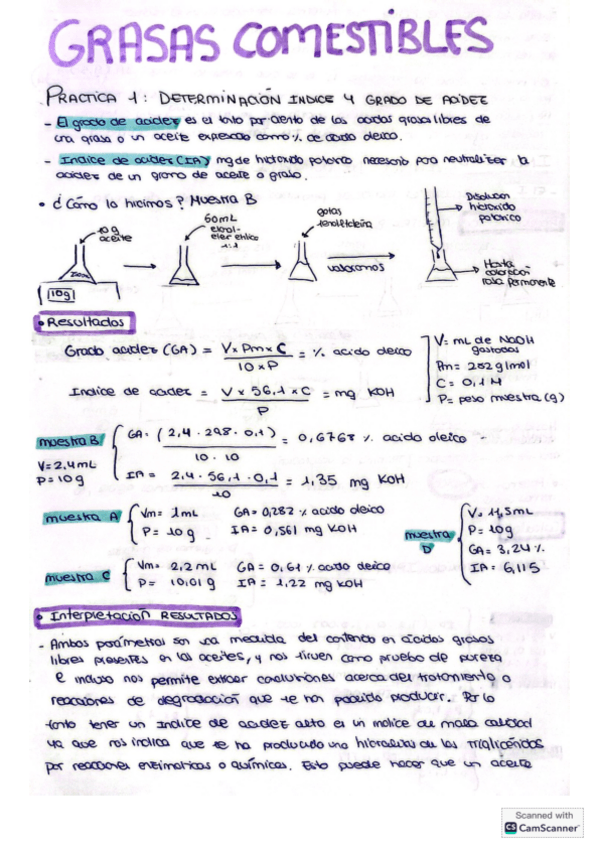 GRASAS COMESTIBLES
PRACTICA 1: DETERMINACIÓN INDICE Y GRADO DE ACIDEZ
- El grado de acidez es el tanto por ciento de los acidos grasos libres de
una grasa o un aceite expresado como % de acido oleico.
- Indice de acidez (IA) mg de hidroxido potasico necesario para neutralizar la
acidez de un gramo de aceite o graso.
• ¿Cómo lo hicimos? Muestra B
10 g
aceite
10g
60 mL
etanol-
eter etilico
1:1
gotas
fenolftaleina
valoramos
Disolucion
hidroxido
potasico
Hasta
coloración
rosa permanente
• Resultados
Grado acidez (GA) = V x Pm x C / 10 x P = % acido oleico
Indice de acidez = V x 56,1 x C / P = mg KOH
V = mL de NaOH
gastados
Pm = 282 g/mol
C = 0,1 M
P = peso muestra (g)
muestra B
V = 2,4 mL
P = 10 g
GA = (2,4 · 298 · 0,1) / 10 · 10 = 0,6768 % acido oleico -
IA = 2,4 · 56,1 · 0,1 / 10 = 1,35 mg KOH
muestra A
Vm = 1 mL
P = 10 g
GA = 0,282 % acido oleico
IA = 0,561 mg KOH
muestra C
Vm = 2,2 mL
P = 10,01 g
GA = 0,61 % acido oleico
IA = 1,22 mg KOH
muestra D
V = 11,5 mL
P = 10g
GA = 3,24 %
IA = 6,115
• Interpretación RESULTADOS
- Ambos parámetros son una medida del contenido en ácidos grasos
libres presentes en los aceites, y nos sirven como prueba de pureza
e incluso nos permite extraer conclusiones acerca del tratamiento o
reacciones de degradación que se han podido producir. Por lo
tanto tener un indice de acidez alto es un indice de mala calidad
ya que nos indica que se ha producido una hidrolisis de los trigliceridos
por reacciones enzimaticas o químicas. Esto puede hacer que un aceite
Scanned with
CS CamScanner